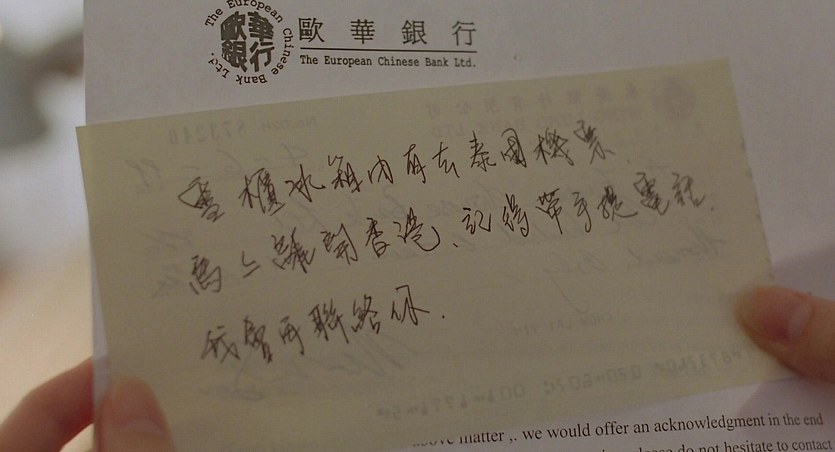 The European Chinese Bank Ltd.
歐華銀行
歐華銀行
The European Chinese Bank Ltd.
雪櫃冰箱內有去泰國機票.
馬上離開香港、記得帶手提電話.
我會再聯絡你.
above matter ,. we would offer an acknowledgment in the end
do not hesitate to contact